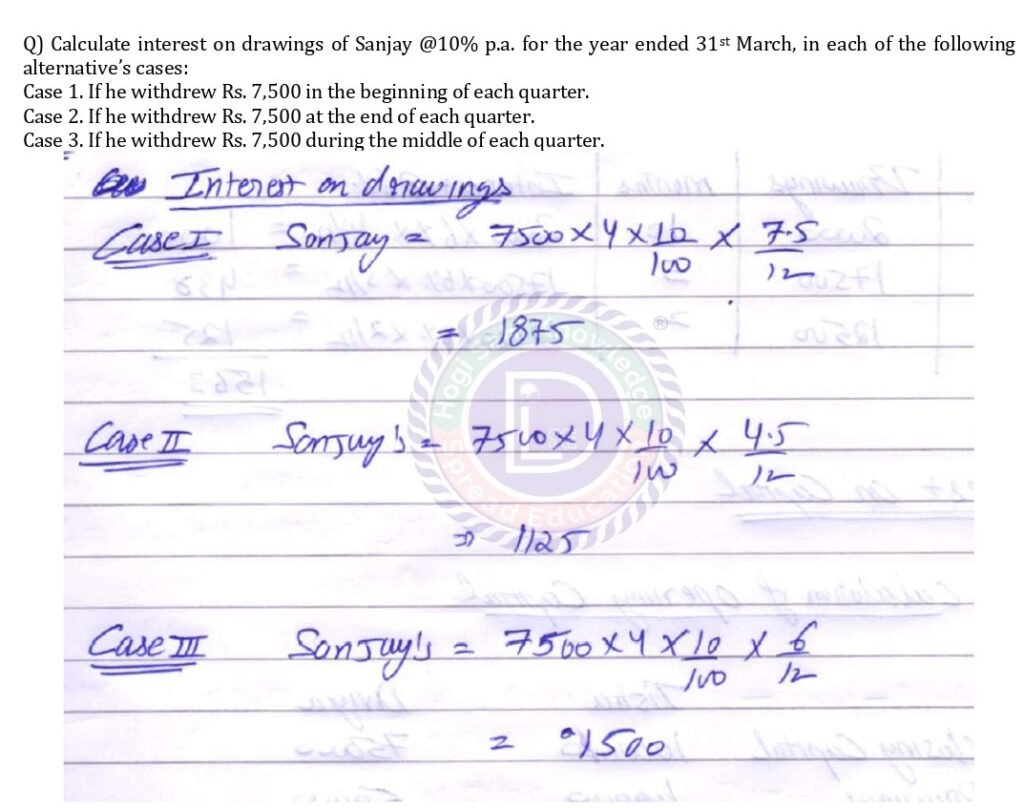 Q) Calculate interest on drawings of Sanjay @10% p.a. for the year ended 31st March, in each of the following
alternative's cases:
Case 1. If he withdrew Rs. 7,500 in the beginning of each quarter.
Case 2. If he withdrew Rs. 7,500 at the end of each quarter.
Case 3. If he withdrew Rs. 7,500 during the middle of each quarter.
Interest on drawings
Case I Sanjay = 7500 × 4 × 10/100 × 7.5/12
= 1875
Case II Sanjay's = 7500 × 4 × 10/100 × 4.5/12
⇒ 1125
Case III Sanjay's = 7500 × 4 × 10/100 × 6/12
= 1500